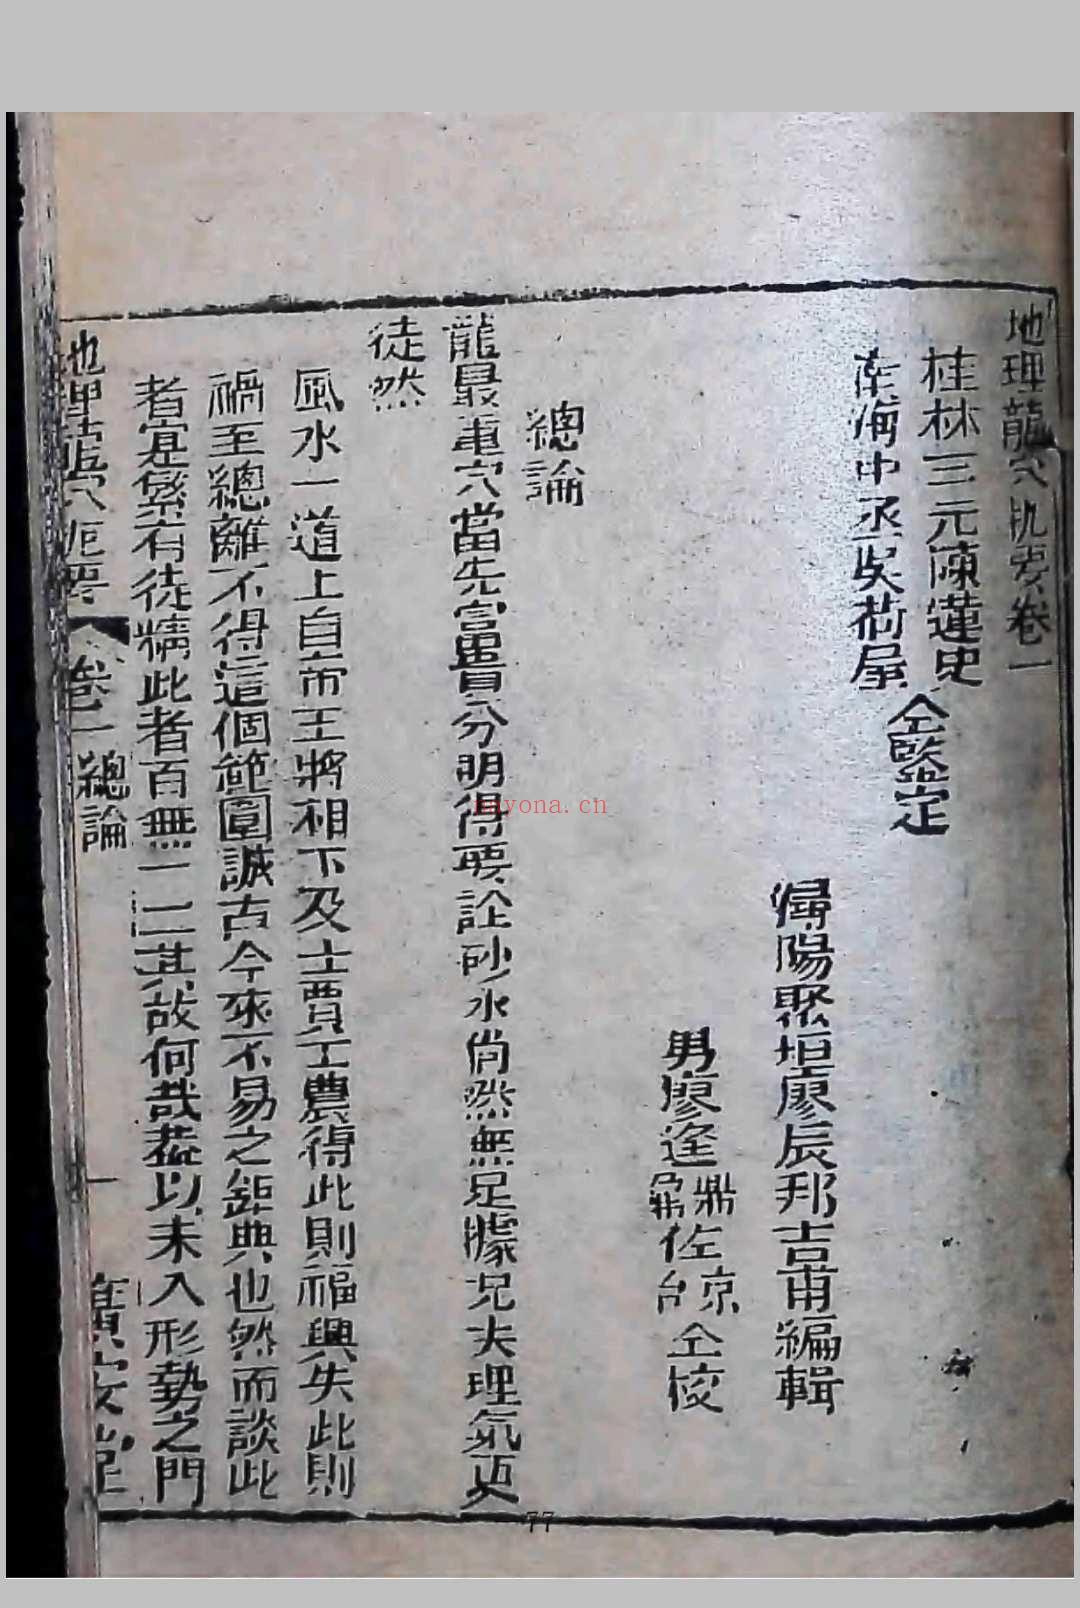 地理龍穴扤要卷一
桂林三元陳蓮史
南海中丞吳荷屋
仝鑒定
潯陽聚垣廖辰邦吉甫編輯
男廖逢鼎鼐佐京台仝校
總論
龍最重穴當先富貴分明得要訟砂水尚然無足據况夫理氣更
徒然
風水一道上自帝王將相下及士賈工農得此則福興失此則
禍至總離不得這個範圍誠古今來不易之鉅典也然而談此
者寔繁有徒精此者百無一二其故何哉葢以未入形勢之門
地理
卷一
總論
一
nayona.cn
77